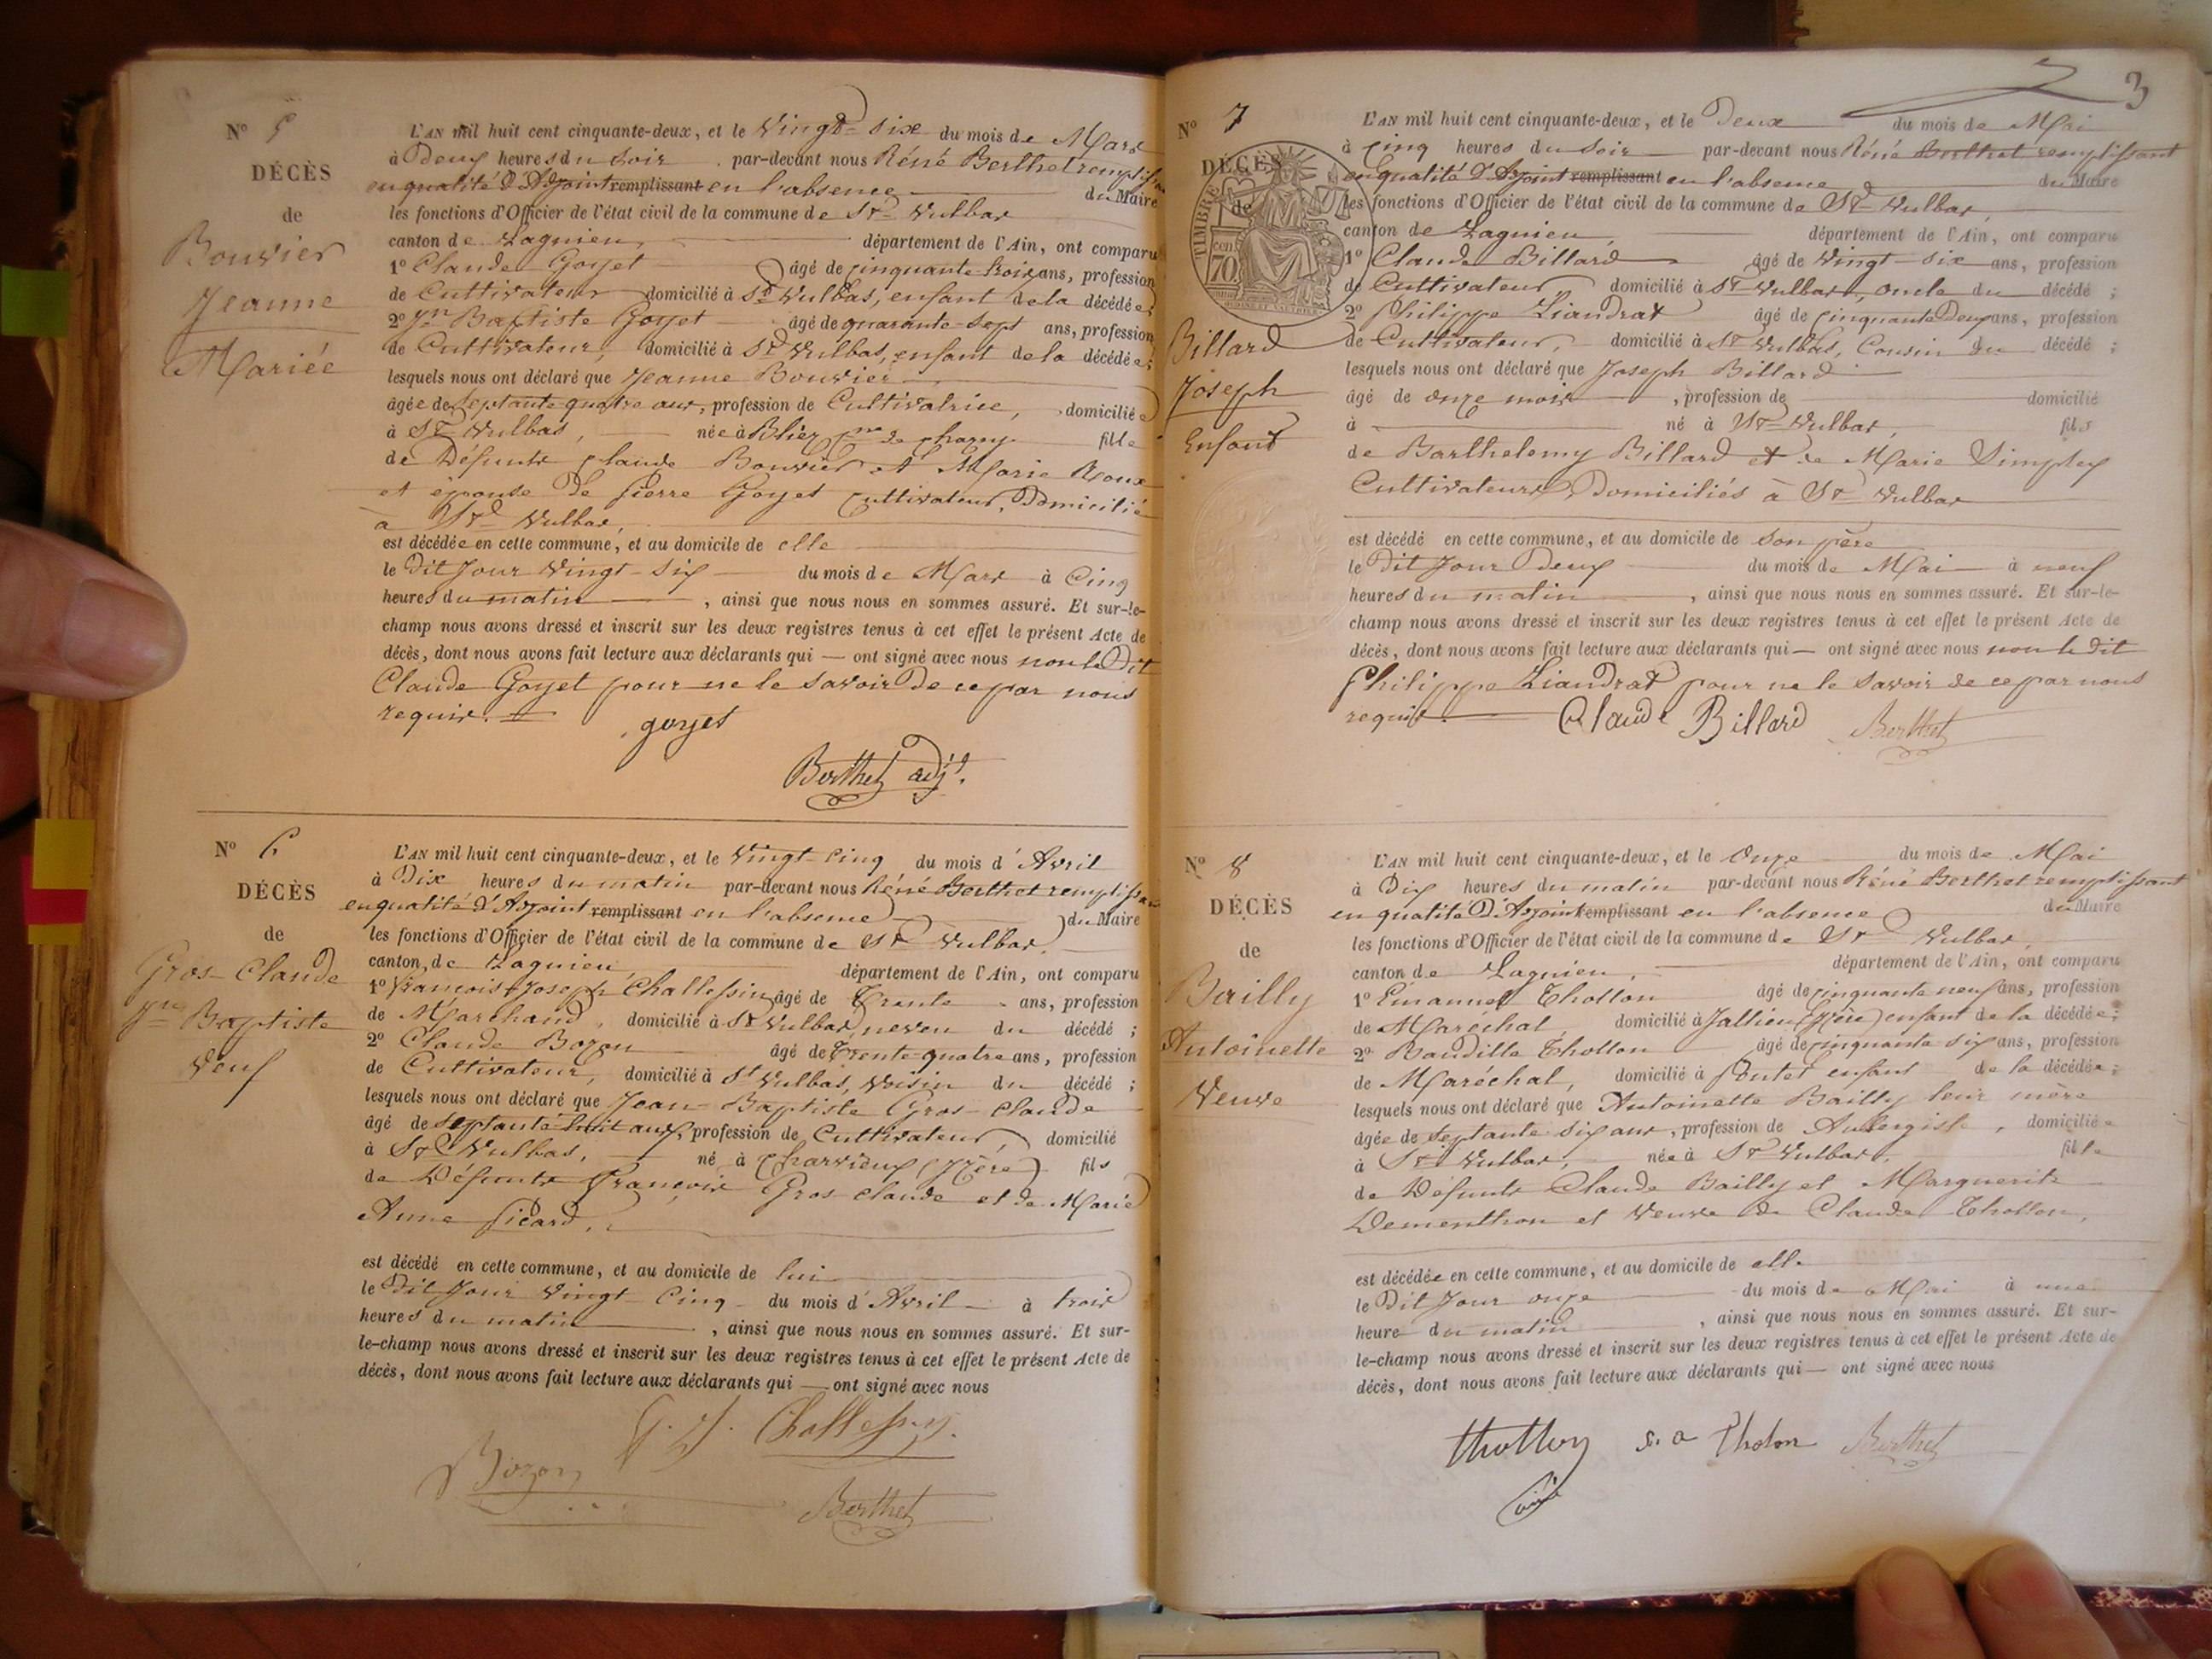 N° 5
DÉCÈS
de
Bouvier
Jeanne
Mariée
L'AN mil huit cent cinquante-deux, et le Vingt-six du mois de Mars
à Deux heures du soir par-devant nous Réné Berthet remplissant
en qualité d'Adjoint remplissant en l'absence du Maire
les fonctions d'Officier de l'état civil de la commune de St Vulbas
canton de Lagnieu, département de l'Ain, ont comparu
1° Claude Goyet âgé de cinquante trois ans, profession
de Cultivateur domicilié à St Vulbas, enfant de la décédée;
2° Jn Baptiste Goyet âgé de quarante-sept ans, profession
de Cultivateur, domicilié à St Vulbas, enfant de la décédée;
lesquels nous ont déclaré que Jeanne Bouvier
âgée de septante quatre ans, profession de Cultivatrice, domiciliée
à St Vulbas, née à Blier fille
de Défunts Claude Bouvier et Marie Roux
et épouse de Pierre Goyet Cultivateur, Domicilié
à St Vulbas,
est décédée en cette commune, et au domicile de elle
le Dit Jour Vingt-Six du mois de Mars à Cinq
heures du matin, ainsi que nous nous en sommes assuré. Et sur-le-
champ nous avons dressé et inscrit sur les deux registres tenus à cet effet le présent Acte de
décès, dont nous avons fait lecture aux déclarants qui — ont signé avec nous non le Dit
Claude Goyet pour ne le savoir De ce par nous
requis.
goyet
Berthet adjt.
N° 6
DÉCÈS
de
Gros-Claude
Jn Baptiste
Veuf
L'AN mil huit cent cinquante-deux, et le Vingt-cinq du mois d'Avril
à Dix heures du matin par-devant nous Réné Berthet remplissant
en qualité d'Adjoint remplissant en l'absence du Maire
les fonctions d'Officier de l'état civil de la commune de St Vulbas.
canton de Lagnieu département de l'Ain, ont comparu
1° François Joseph Challessin âgé de Trente ans, profession
de Marchand, domicilié à St Vulbas neveu du décédé;
2° Claude Bozon âgé de Trente-quatre ans, profession
de Cultivateur, domicilié à St Vulbas, Voisin du décédé;
lesquels nous ont déclaré que Jean-Baptiste Gros-Claude
âgé de septante-huit ans, profession de Cultivateur, domicilié
à St Vulbas, né à Charvieux (Isère) fils
de Défunts François Gros Claude et de Marie
Anne Sicard,
est décédé en cette commune, et au domicile de lui
le Dit Jour Vingt Cinq du mois d'Avril à trois
heures du matin, ainsi que nous nous en sommes assuré. Et sur-
le-champ nous avons dressé et inscrit sur les deux registres tenus à cet effet le présent Acte de
décès, dont nous avons fait lecture aux déclarants qui — ont signé avec nous
Bozon
Berthet
3
N° 7
DÉCÈS
de
TIMBRE
cen
70
Billard
Joseph
Enfant
L'AN mil huit cent cinquante-deux, et le Deux du mois de Mai
à Cinq heures du soir par-devant nous Réné Berthet remplissant
en qualité d'Adjoint remplissant en l'absence du Maire
les fonctions d'Officier de l'état civil de la commune de St Vulbas,
canton de Lagnieu département de l'Ain, ont comparu
1° Claude Billard âgé de Vingt-six ans, profession
de Cultivateur, domicilié à St Vulbas, oncle du décédé;
2° Philippe Liandrat âgé de cinquante Deux ans, profession
de Cultivateur, domicilié à St Vulbas, Cousin du décédé;
lesquels nous ont déclaré que Joseph Billard
âgé de onze mois, profession de domicilié
à né à St Vulbas, fils
de Barthelemy Billard et de Marie Simplex
Cultivateurs Domiciliés à St Vulbas
est décédé en cette commune, et au domicile de son père
le Dit Jour Deux du mois de Mai à neuf
heures du matin, ainsi que nous nous en sommes assuré. Et sur-le-
champ nous avons dressé et inscrit sur les deux registres tenus à cet effet le présent Acte de
décès, dont nous avons fait lecture aux déclarants qui — ont signé avec nous non le dit
Philippe Liandrat pour ne le savoir de ce par nous
requis. Claude Billard Berthet
N° 8
DÉCÈS
de
Bailly
Antoinette
Veuve
L'AN mil huit cent cinquante-deux, et le Onze du mois de Mai
à Dix heures du matin par-devant nous Réné Berthet remplissant
en qualité d'Adjoint remplissant en l'absence du Maire
les fonctions d'Officier de l'état civil de la commune de St Vulbas,
canton de Lagnieu, département de l'Ain, ont comparu
1° Emanuel Thollon âgé de cinquante neuf ans, profession
de Maréchal, domicilié à Jallieu (Isère) enfant de la décédée;
2° Baudille Thollon âgé de cinquante six ans, profession
de Maréchal, domicilié à enfant de la décédée;
lesquels nous ont déclaré que Antoinette Bailly leur mère
âgée de septante six ans, profession de Aubergiste, domiciliée
à St Vulbas, née à St Vulbas, fille
de Défunts Claude Bailly et Marguerite
Dementhon et Veuve de Claude Thollon,
est décédée en cette commune, et au domicile de elle
le Dit Jour onze du mois de Mai à une
heure du matin, ainsi que nous nous en sommes assuré. Et sur-
le-champ nous avons dressé et inscrit sur les deux registres tenus à cet effet le présent Acte de
décès, dont nous avons fait lecture aux déclarants qui — ont signé avec nous
Thollon Tholon Berthet